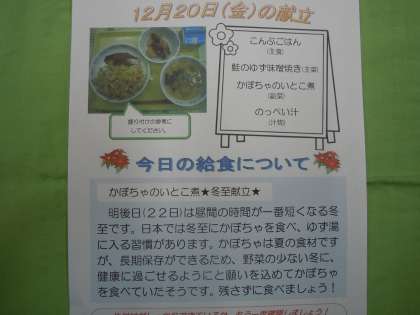 12月20日(金)の献立
こんぶごはん
(主食)
鮭のゆず味噌焼き(主菜)
かぼちゃのいとこ煮
(副菜)
のっぺい汁
(汁物)
盛り付けの参考に
してください。
今日の給食について
かぼちゃのいとこ煮★冬至献立★
明後日(22日)は昼間の時間が一番短くなる冬
至です。日本では冬至にかぼちゃを食べ、ゆず湯
に入る習慣があります。かぼちゃは夏の食材です
が、長期保存ができるため、野菜の少ない冬に、
健康に過ごせるようにと願いを込めてかぼちゃ
を食べていたそうです。残さずに食べましょう!